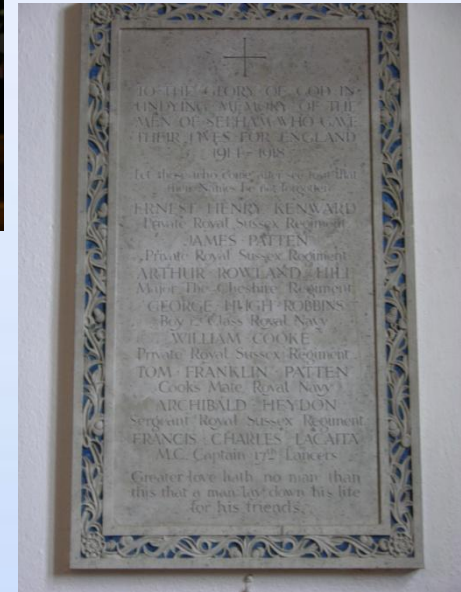 TO THE GLORY OF GOD IN
UNDYING MEMORY OF THE
MEN OF SELHAM WHO GAVE
THEIR LIVES FOR ENGLAND
1914-1918
Let those who come after see to it that
their Names be not forgotten
ERNEST HENRY KENWARD
Private Royal Sussex Regiment
JAMES PATTEN
Private Royal Sussex Regiment
ARTHUR ROWLAND HILL
Major The Cheshire Regiment
GEORGE HUGH ROBBINS
Boy Class Royal Navy
WILLIAM COOKE
Private Royal Sussex Regiment
TOM FRANKLIN PATTEN
Cooks Mate Royal Navy
ARCHIBALD HEYDON
Sergeant Royal Sussex Regiment
FRANCIS CHARLES LACAITA
M.C. Captain 17th Lancers
Greater love hath no man than
this that a man lay down his life
for his friends.